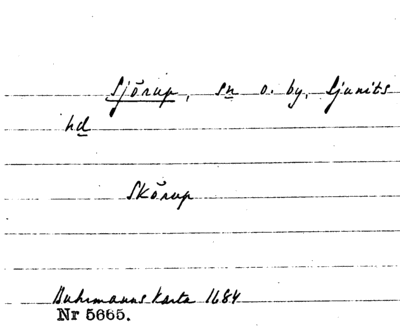 Sjörup, sn o. by, Ljunits
hd
Skörup
Buhrmanns Karta 1684
Nr 5665.